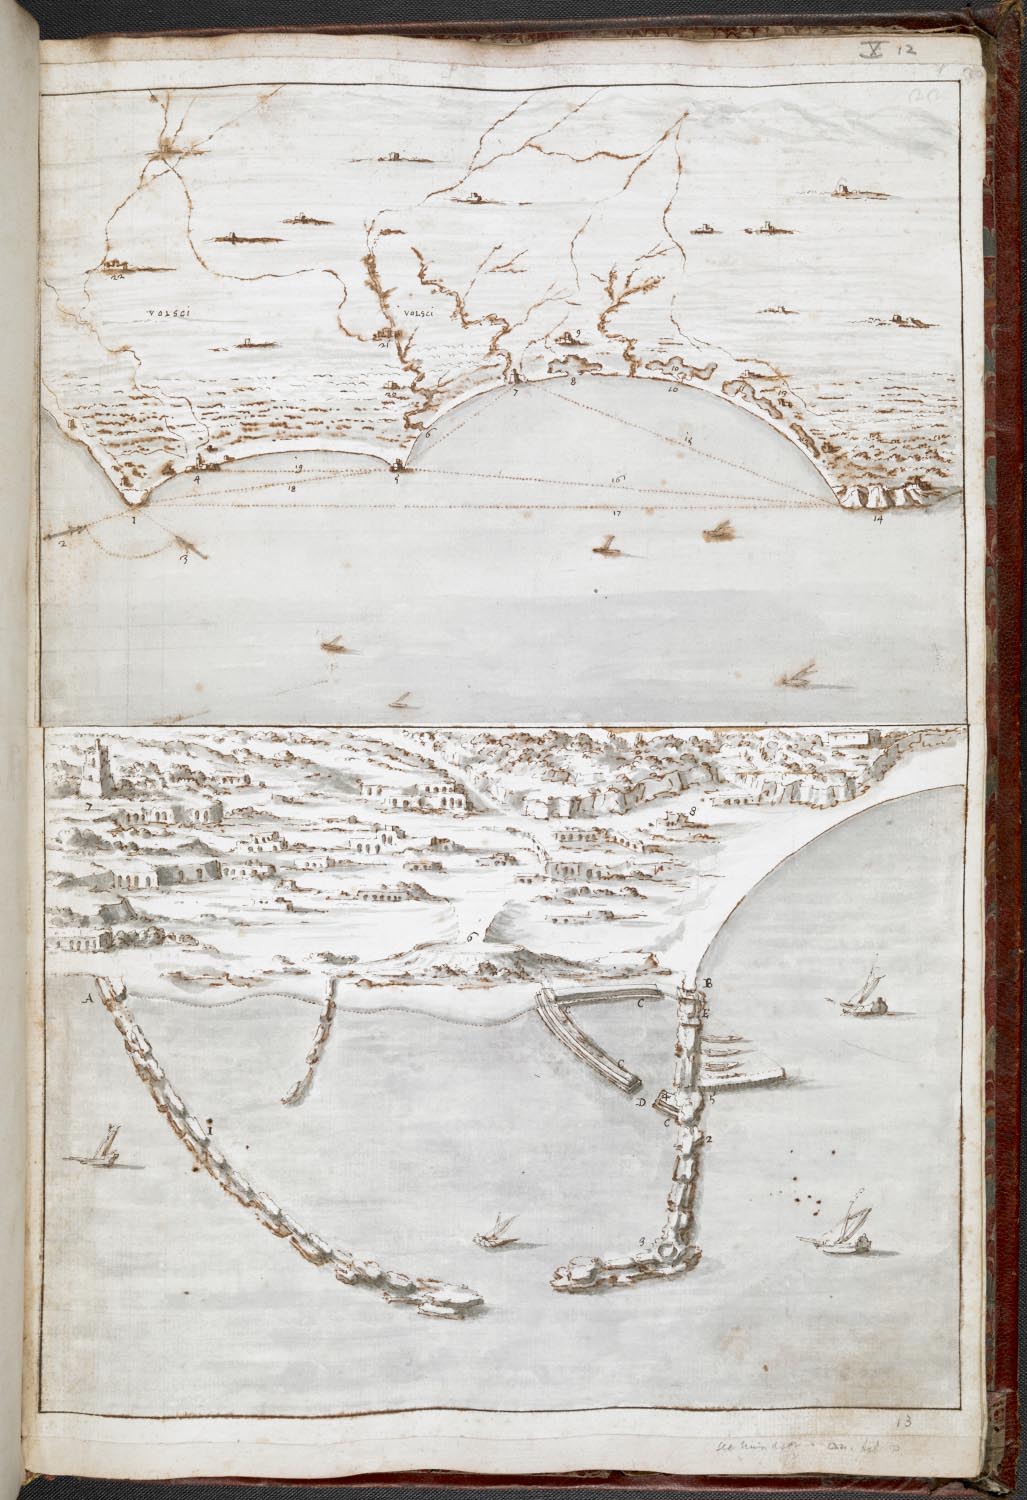 X 12
22
VOLSCI
VOLSCI
21
20
9
8
10
10
7
6
15
19
18
4
5
16
17
1
2
3
14
7
8
6
A
B
E
C
C
D
4
5
C
I
2
3
13
see